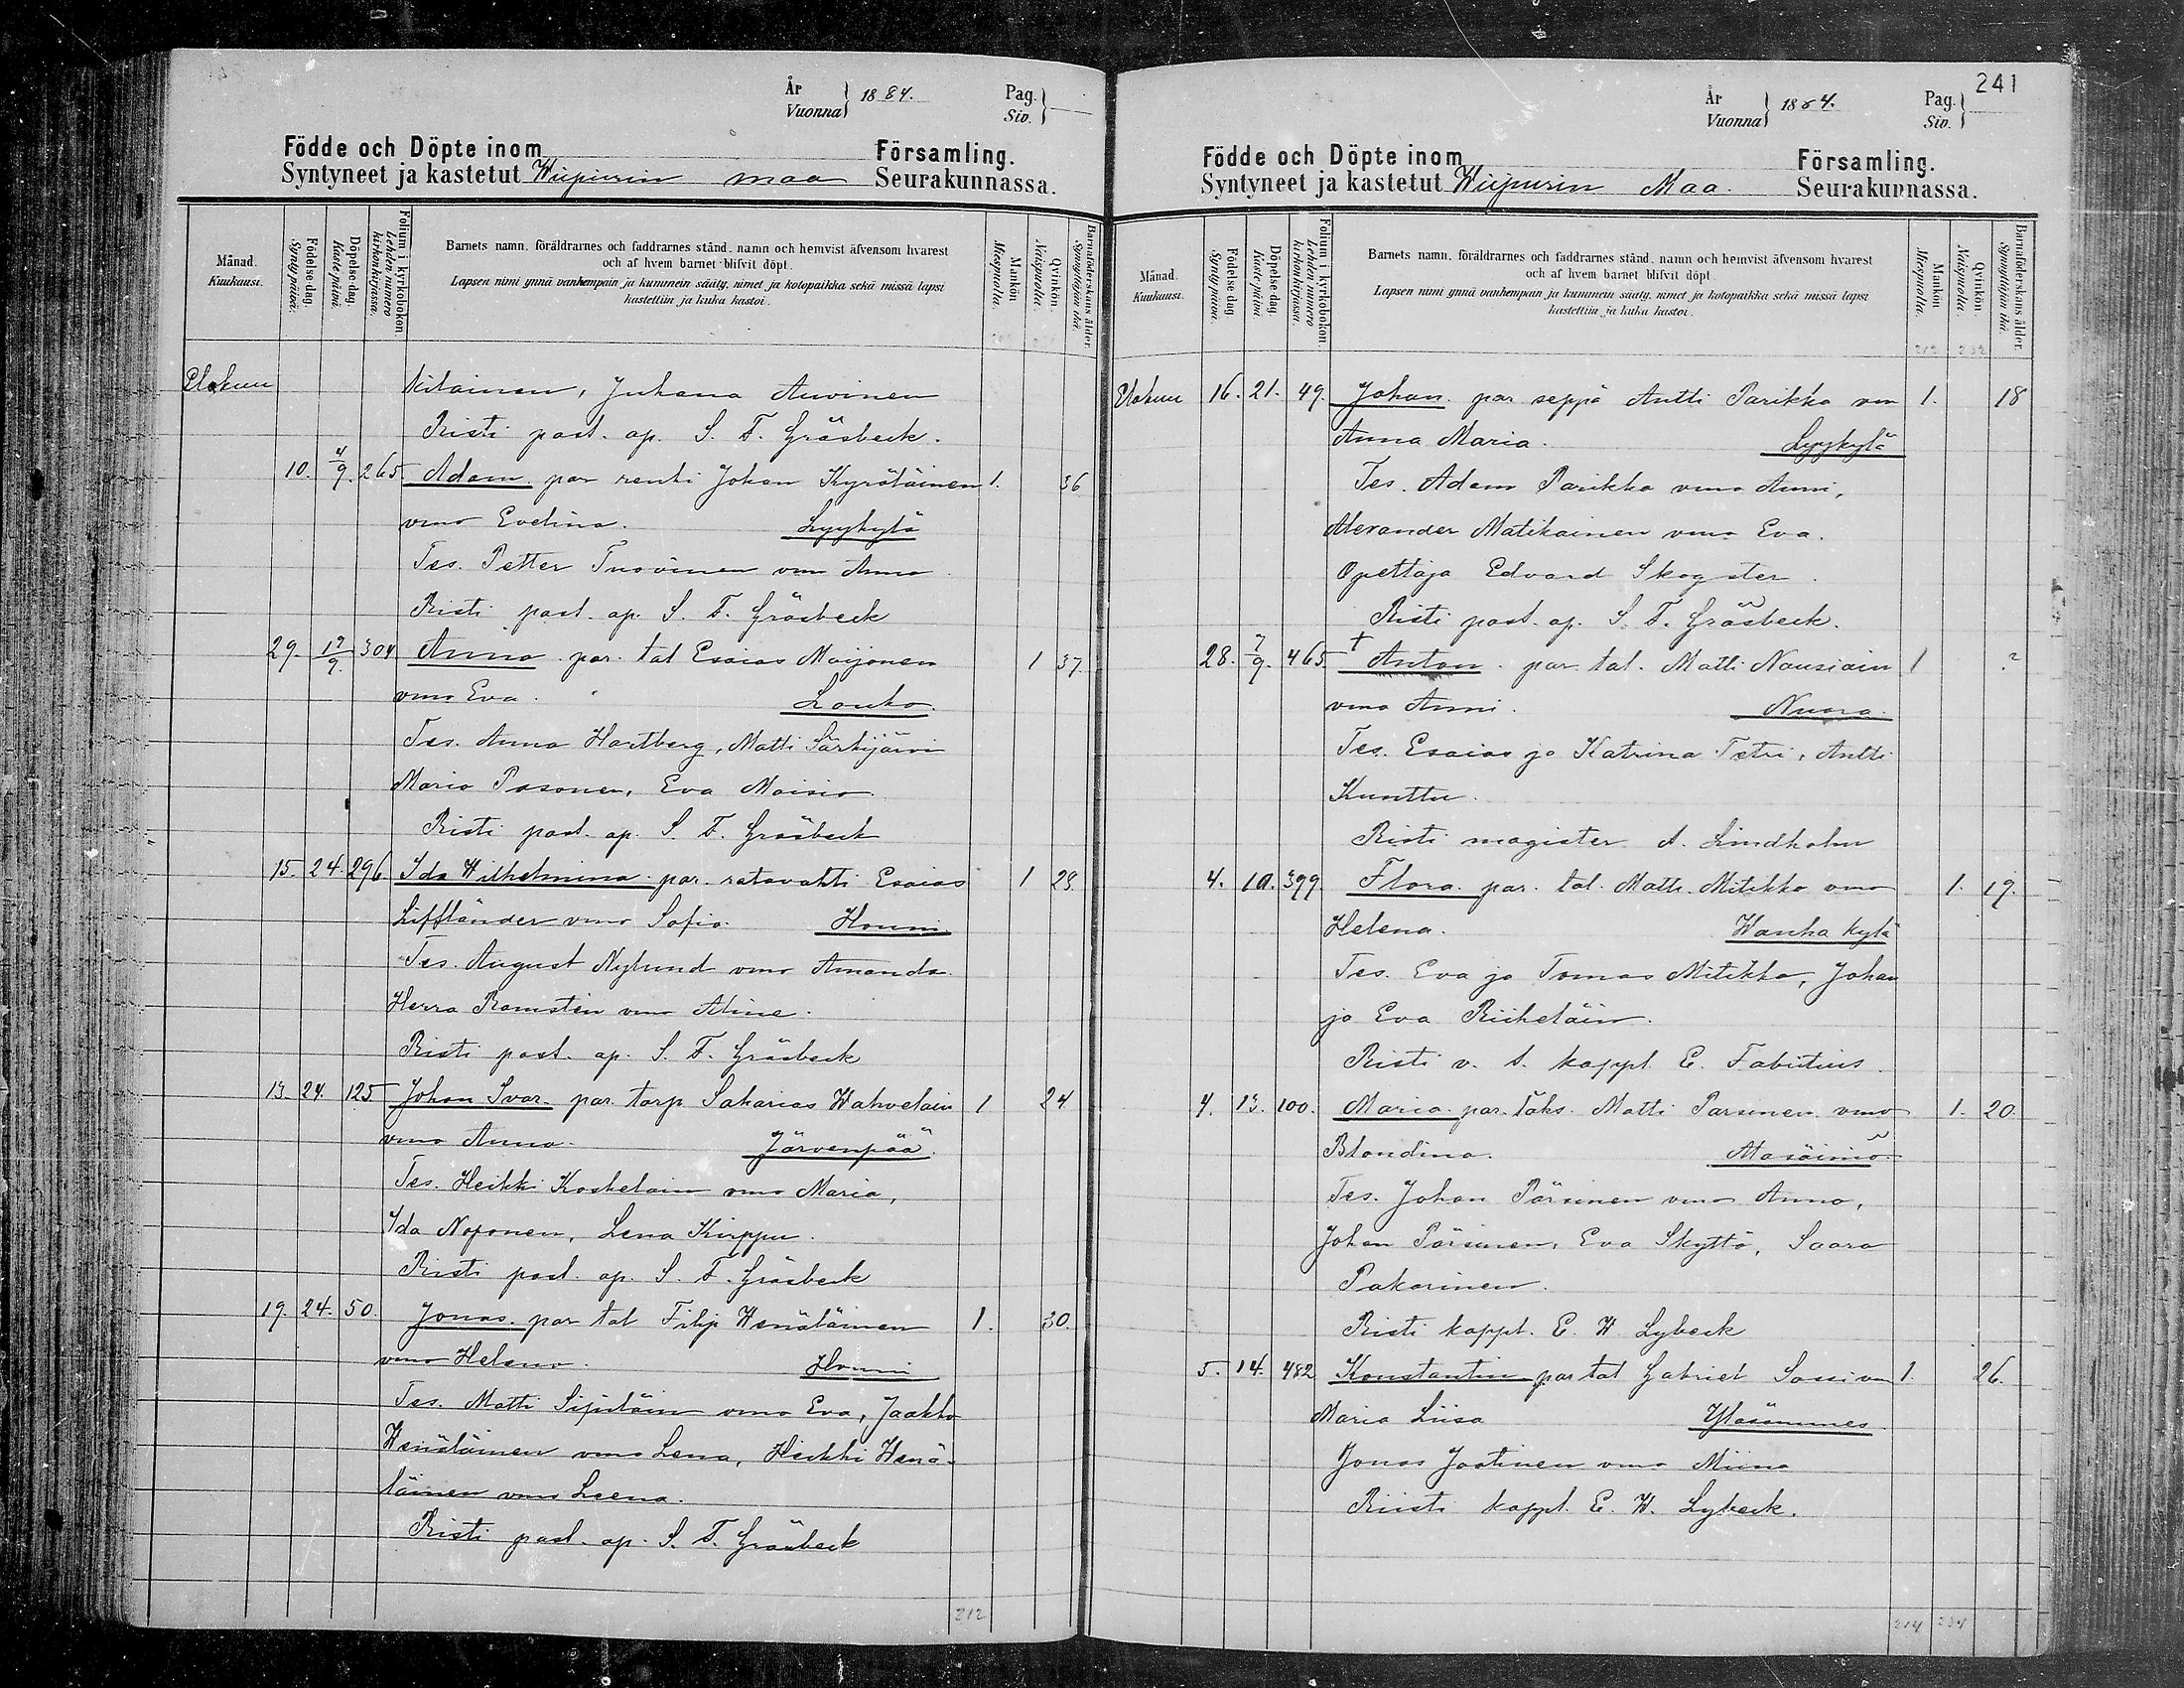 År
Vuonna } 1884.
Pag.
Siv. }
Födde och Döpte inom Församling.
Syntyneet ja kastetut Wiipurin maa Seurakunnassa.
Månad.
Kuukausi.
Födelse-dag.
Syntypäivä.
Döpelse-dag.
Kastepäivä.
Folium i kyrkoboken.
Lehden numero kirkonkirjassa.
Barnets namn, föräldrarnes och faddrarnes stånd, namn och hemvist äfvensom hvarest
och af hvem barnet blifvit döpt.
Lapsen nimi ynnä vanhempain ja kummein sääty, nimet ja kotopaikka sekä missä lapsi
kastettiin ja kuka kastoi.
Mankön
Miespuolia.
Qvinkön.
Naispuolia.
Barnaföderskans ålder.
Synnyttäjän ikä.
Elokuu
Juhana Auvinen
Risti past. ap. S. F. Gråsbeck.
10. 4/9. 265 Adam par renki Johan Kyröläinen 1. 36
vmo Evelina. Lyykylä
Tes. Petter Tuovinen vmo Anna
Risti past. ap. S. F. Gråsbeck
29. 17/9. 304 Anna par. tal Esaias Moijonen 1 37.
vmo Eva. Louko.
Tes. Anna Hartberg, Matti Särkijärvi
Maria Pesonen, Eva Moisio
Risti past. ap. S. F. Gråsbeck
15. 24. 296 Ida Wilhelmina par. ratavahti Esaias 1 28
Liffländer vmo Sofia. Hounin
Tes. August Nylund vmo Amanda
Herra Ramstén vmo Aline.
Risti past. ap. S. F. Gråsbeck
13. 24. 125 Johan Ivar par torp Sakarias Wahvelain 1 24
vmo Anna. Järvenpää.
Tes. Heikki Koskelain vmo Maria,
Ida Noponen, Lena Kirppu.
Risti past. ap. S. F. Gråsbeck
19. 24. 50. Jonas. par tal Filip Wenäläinen 1. 30.
vmo Helena. Hounin
Tes. Matti Sipiläin vmo Eva, Jaakko
Wenäläinen vmo Lena, Heikki Wenä-
läinen vmo Leena.
Risti past. ap. S. F. Gråsbeck
212
241
År
Vuonna } 1884.
Pag.
Siv. }
Födde och Döpte inom Församling.
Syntyneet ja kastetut Wiipurin Maa. Seurakunnassa.
Månad.
Kuukausi.
Födelse dag.
Syntypäivä.
Döpelse dag.
Kastepäivä.
Folium i kyrkobokon.
Lehden numero kirkonkirjassa.
Barnets namn, föräldrarnes och faddrarnes stånd, namn och hemvist äfvensom hvarest
och af hvem barnet blifvit döpt.
Lapsen nimi ynnä vanhempain ja kummein sääty, nimet ja kotopaikka sekä missä lapsi
kastettiin ja kuka kastoi.
Mankön
Miespuolia.
Qvinkön.
Naispuolia.
Barnaföderskans ålder.
Synnyttäjän ikä.
212 232
Elokuu 16. 21. 49. Johan. par seppä Antti Parikka vm 1. 18
Anna Maria. Lyykylä
Tes. Adam Parikka vmo Anni,
Alexander Matikainen vmo Eva.
Opettaja Edvard Skogster.
Risti past. ap. S. F. Gråsbeck.
28. 7/9. 465 † Anton. par tal. Matti Nausiain 1 ?
vmo Anni. Nuora.
Tes. Esaias ja Katrina Tetri, Antti
Kunttu.
Risti magister A. Lindholm
4. 10. 399 Flora. par. tal. Matti Mitikka vmo 1. 19.
Helena. Wanha kylä
Tes. Eva ja Tomas Mitikka, Johan
ja Eva Riiheläin.
Risti v. t. kappl. E. Fabritius.
4. 13. 100. Maria par. Matti Parsinen vmo 1. 20.
Blondina. Alasäiniö
Tes. Johan Pärsinen vmo Anna,
Johan Pärsinen, Eva Skyttä, Saara
Pakarinen.
Risti kappl. E. W Lybeck
5. 14. 482 Konstantin par tal Gabriel Sassi vm 1. 26.
Maria Liisa Yläsommes
Jonas Jaatinen vmo Miina
Risti kappl. E. W. Lybeck.
214 234